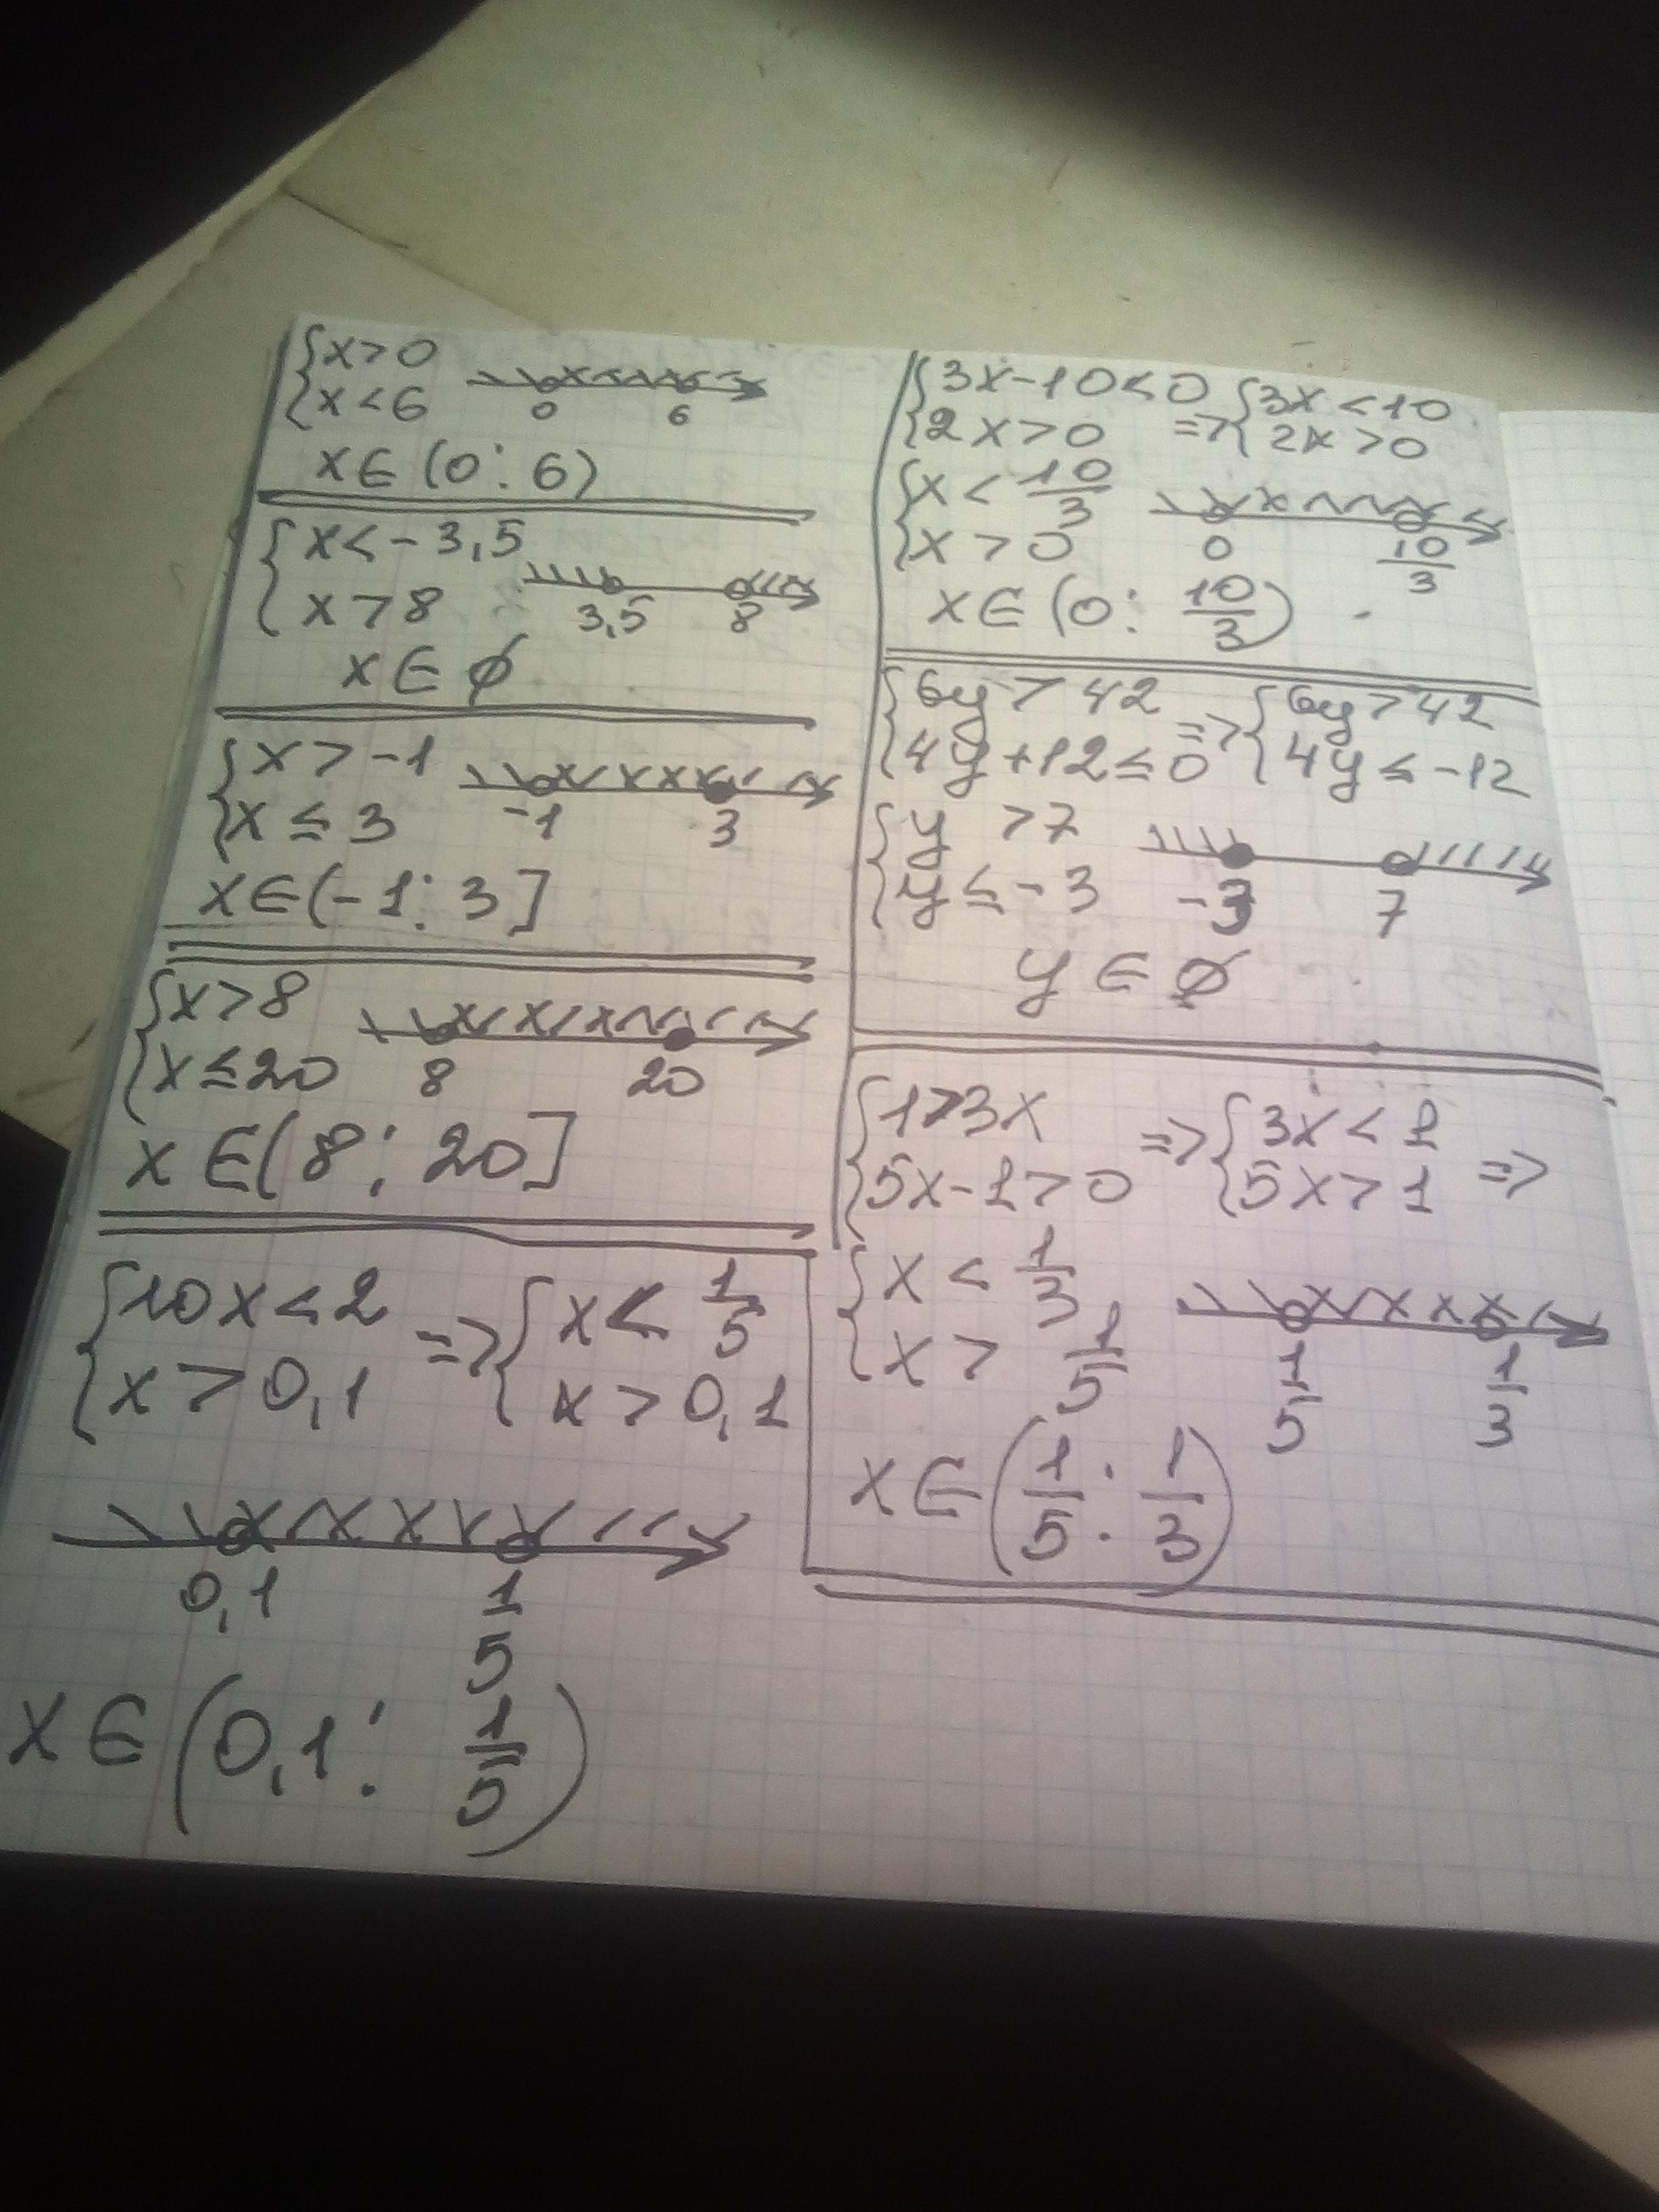 {x>0
{x<6
0 6
x∈(0; 6)
{x<-3,5
{x>8
3,5 8
x∈ϕ
{x>-1
{x≤3
-1 3
x∈(-1; 3]
{x>8
{x≤20
8 20
x∈(8; 20]
{10x<2 => {x<1/5
{x>0,1 {x>0,1
0,1 1/5
x∈(0,1; 1/5)
{3x-10<0 => {3x<10
{2x>0 {2x>0
{x<10/3
{x>0
0 10/3
x∈(0; 10/3)
{6y>42 => {6y>42
{4y+12≤0 {4y≤-12
{y>7
{y≤-3
-3 7
y∈ϕ
{1>3x => {3x<1 =>
{5x-1>0 {5x>1
{x<1/3
{x>1/5
1/5 1/3
x∈(1/5; 1/3)